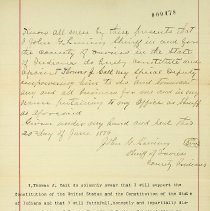 000478
Know all men by these presents that
I John G. Leming Sheriff in and for
the County of Daviess in the State
of Indiana do hereby constitute and
appoint Thomas J. Cart my special deputy
empowering him to perform
any and all business for me and in my
name pertaining to my Office as Sheriff
as aforesaid
Given under my hand and seal this
day of June
John G. Leming
Sheriff of Daviess
County Indiana
I, Thomas J. Cart do solemnly swear that I will support the
Constitution of the United States and the Constitution of the State
of Indiana and that I will faithfully, honestly and impartially dis-